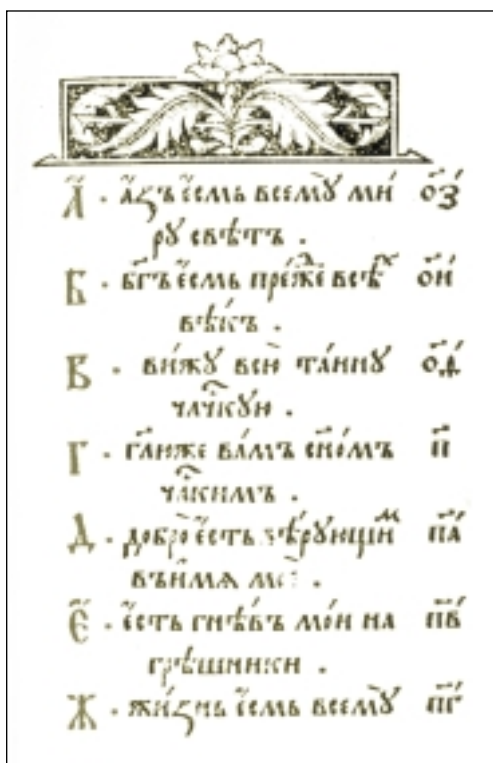 А҃ · а҆́зъ є҆́смь всемꙋ̀ ми́ ѻ҃з
рꙋ свѣ́тъ .
Б · бг҃ъ є҆́смь пре́же всѣ́ⷯ ѻ҃и
вѣ́къ .
В · ви́жꙋ всю̀ та́инꙋ ѻ҃ѳ
члч҃кꙋю .
Г · гл҃юже ва́мъ сн҃о́мъ п҃
члч҃кимъ .
Д · добро̀ є҆́сть вѣ́рꙋющиⷨ п҃а
въ и҆́мѧ моѐ .
Є҃ · є҆́сть гнѣ́въ мо́и на п҃в
грѣ́шники .
Ж · жи́знь є҆́смь всемꙋ̀ п҃г